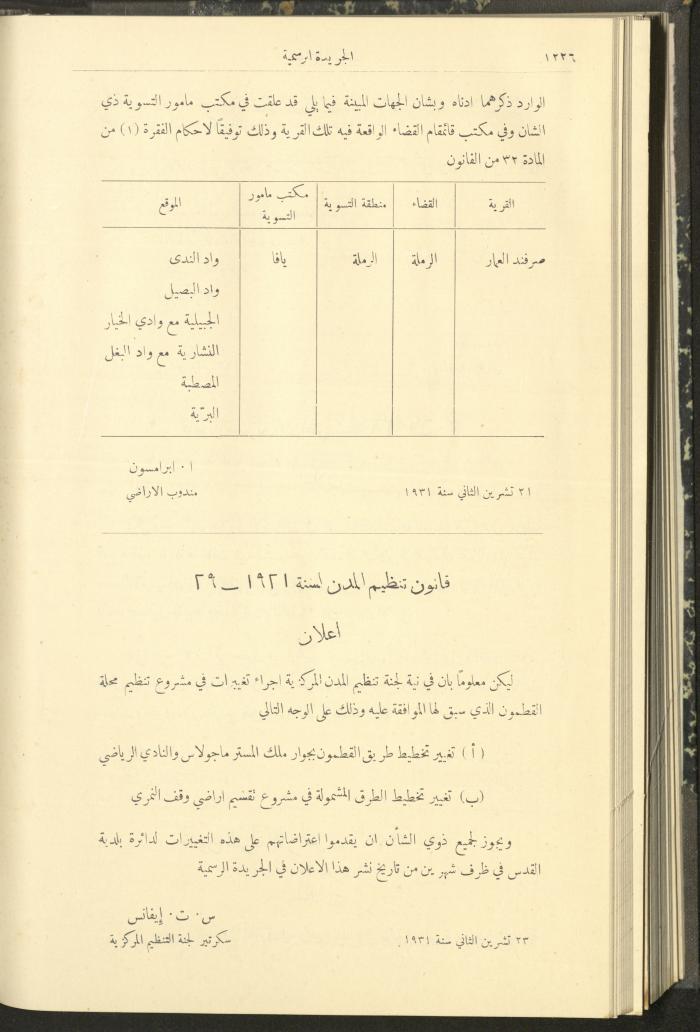 ١٢٢٦
الجريدة الرسمية
الوارد ذكرهما ادناه وبشان الجهات المبينة فيما يلي قد علقت في مكتب مامور التسوية ذي
الشان وفي مكتب قائمقام القضاء الواقعة فيه تلك القرية وذلك توفيقًا لاحكام الفقرة (١) من
المادة ٣٢ من القانون
القرية القضاء منطقة التسوية مكتب مامور التسوية الموقع
صرفند العمار الرملة الرملة يافا واد الندى
واد البصيل
الجبيلية مع وادي الخيار
النشارية مع واد البغل
المصطبة
البرّية
ا. ابرامسون
٢١ تشرين الثاني سنة ١٩٣١ مندوب الاراضي
قانون تنظيم المدن لسنة ١٩٢١ – ٢٩
اعلان
ليكن معلومًا بان في نية لجنة تنظيم المدن المركزية اجراء تغييرات في مشروع تنظيم محلة
القطمون الذي سبق لها الموافقة عليه وذلك على الوجه التالي
(أ) تغيير تخطيط طريق القطمون بجوار ملك المستر ماجولاس والنادي الرياضي
(ب) تغيير تخطيط الطرق المشمولة في مشروع تقسيم اراضي وقف النمري
ويجوز لجميع ذوي الشأن ان يقدموا اعتراضاتهم على هذه التغييرات لدائرة بلدية
القدس في ظرف شهرين من تاريخ نشر هذا الاعلان في الجريدة الرسمية
س. ت. إيفانس
٢٣ تشرين الثاني سنة ١٩٣١. سكرتير لجنة التنظيم المركزية